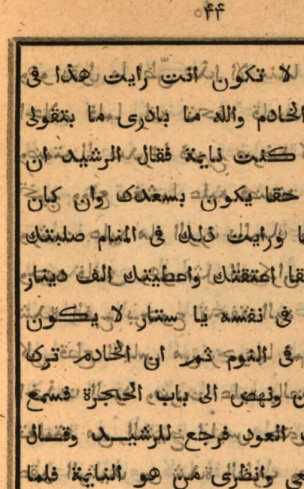 ٤٤
لا تكون انت رايت هذا فى
الخادم والله ما بادرى ما بتقولى
كنت نايمة فقال الرشيد ان
حقا يكون بسعدك وان كان
ورايت ذلك فى المنام صلبتك
اعتقتك واعطيتك الف دينار
فى نفسه يا ستار لا يكون
فى النوم ثم ان الخادم ترك
ونهض الى باب الحجرة فسمع
العود فرجع للرشيد وقال
وانظرى من هو النايمة فلما